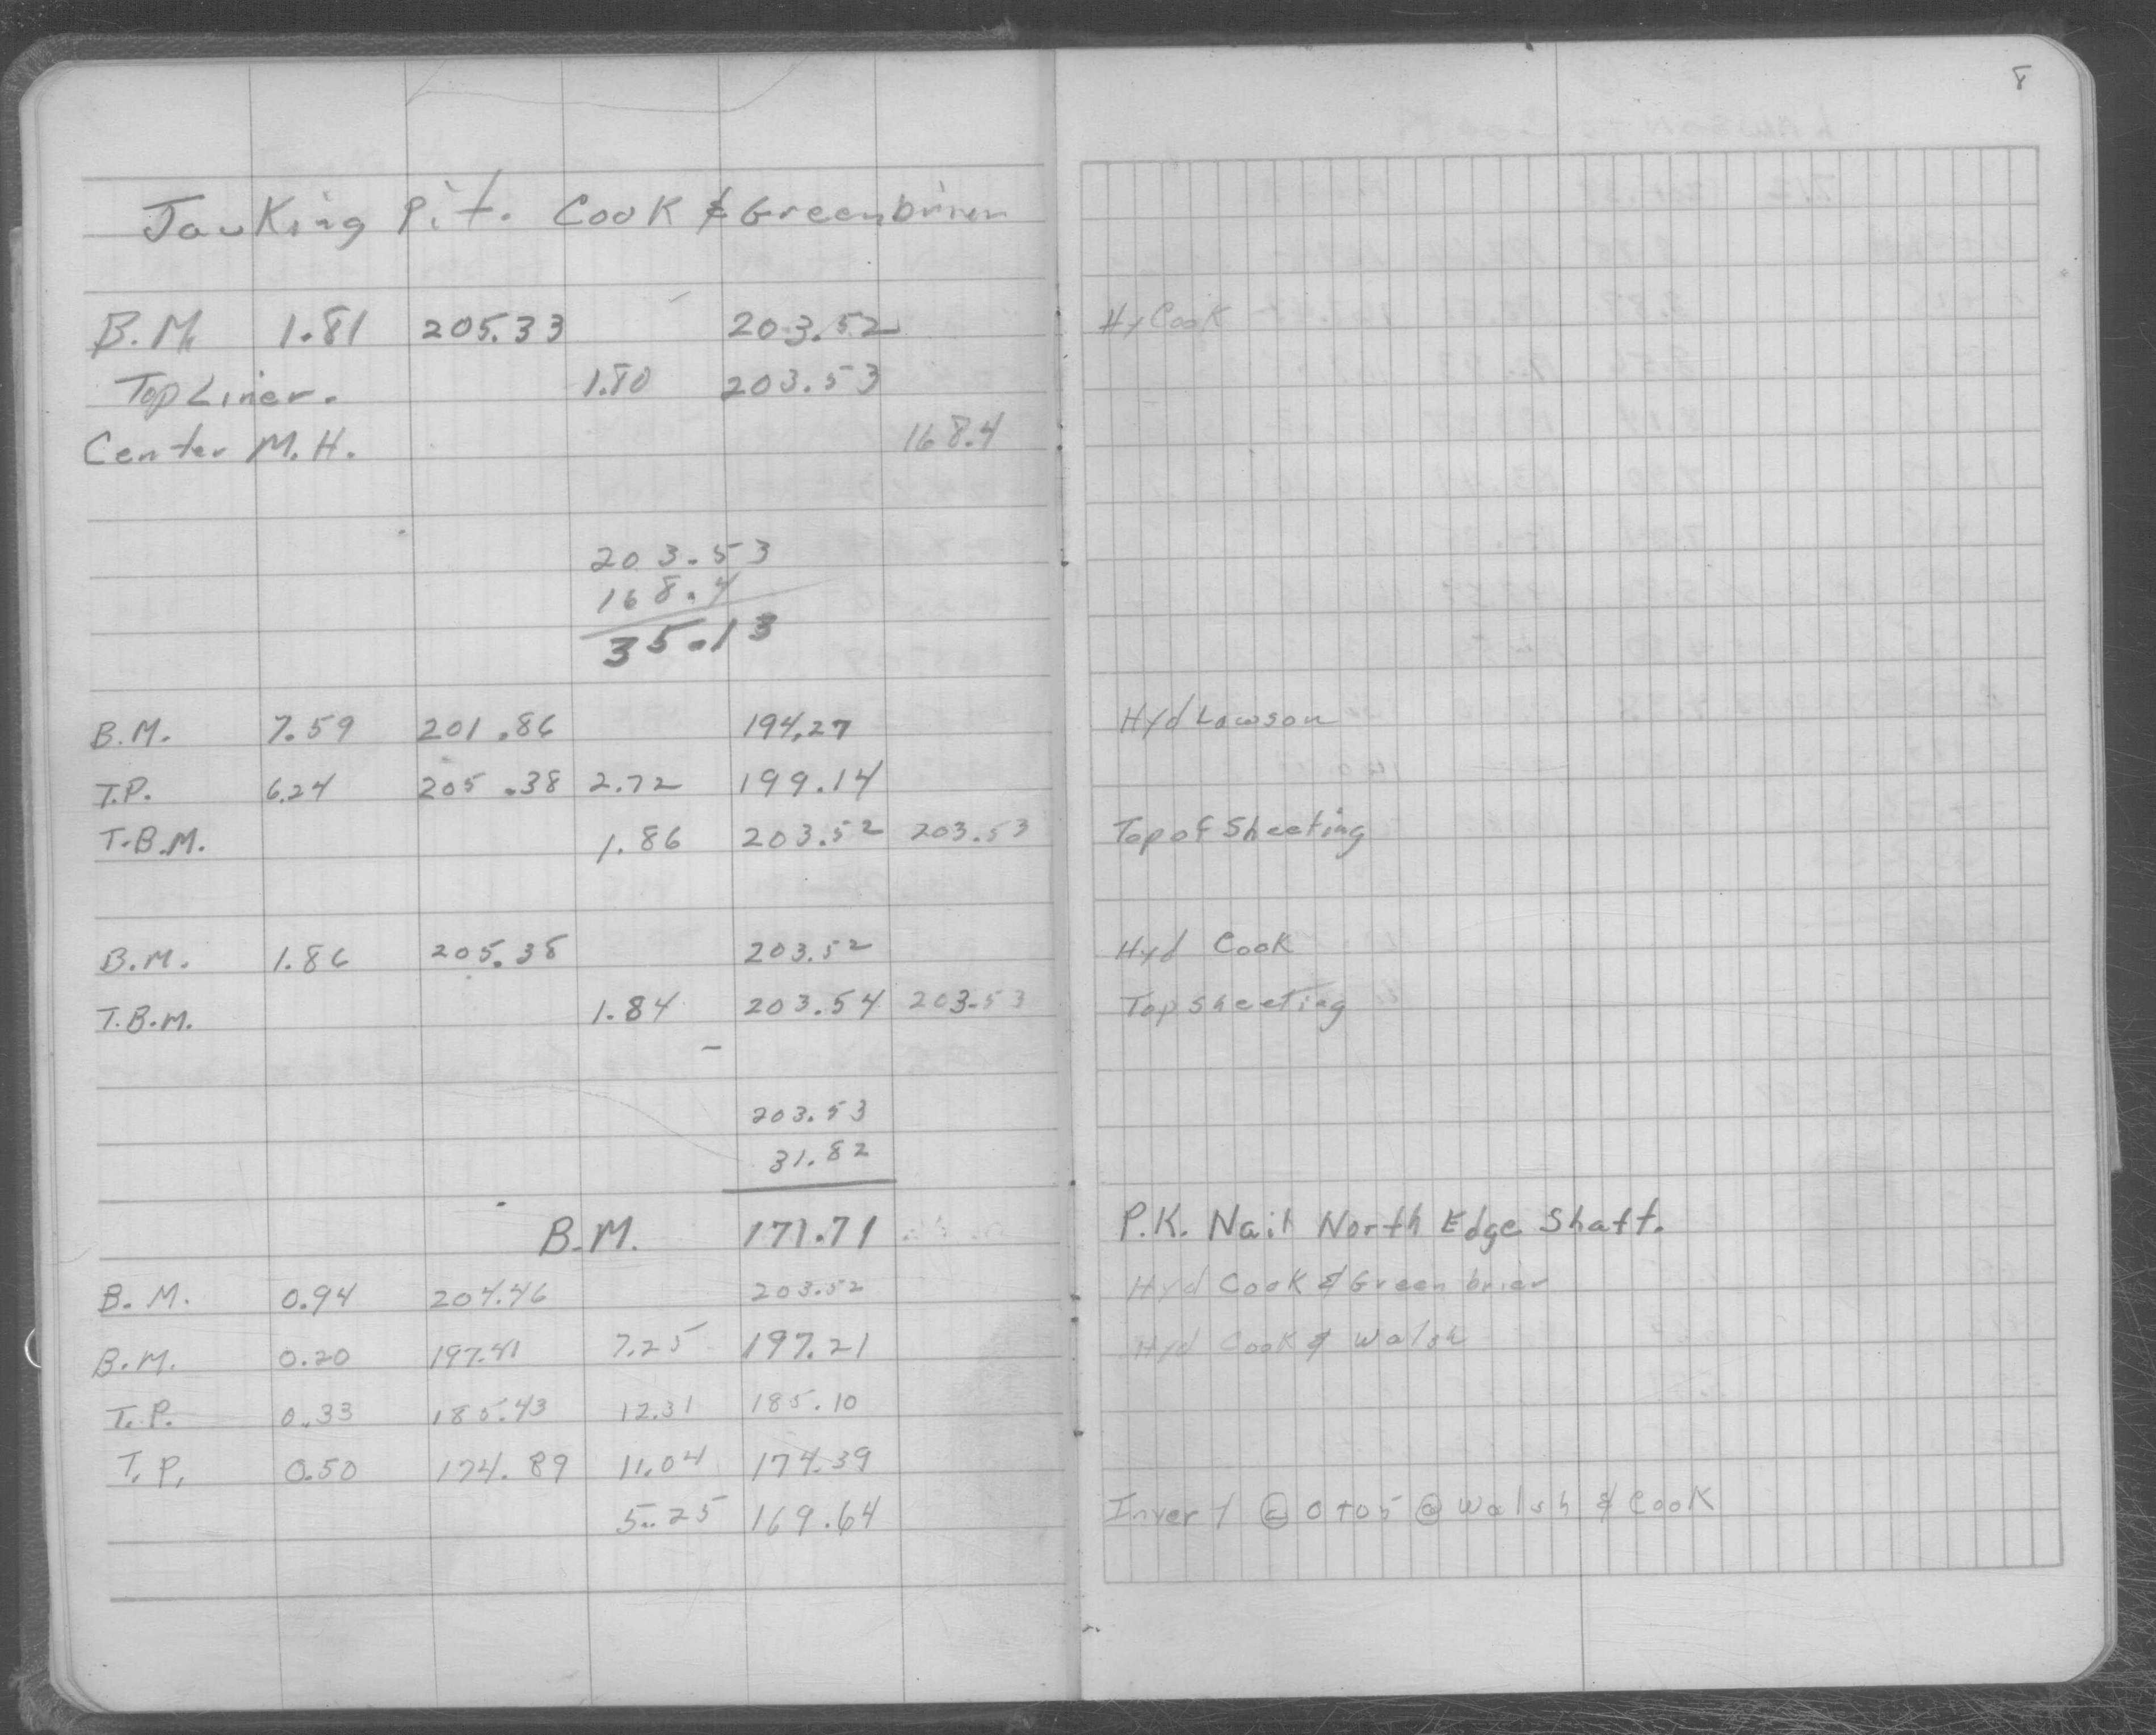 8
Jacking Pit. Cook & Greenbrier
B.M. 1.81 205.33 203.52 Hy Cook
Top Liner. 1.80 203.53
Center M.H. 168.4
203.53
168.4
35.13
B.M. 7.59 201.86 194.27 Hyd Lawson
T.P. 6.24 205.38 2.72 199.14
T.B.M. 1.86 203.52 203.53 Top of Sheeting
B.M. 1.86 205.38 203.52 Hyd Cook
T.B.M. 1.84 203.54 203.53 Top sheeting
203.53
31.82
B.M. 171.71 P.K. Nail North Edge Shaft.
B.M. 0.94 204.46 203.52 Hyd Cook & Greenbrier
B.M. 0.20 197.41 7.25 197.21 Hyd Cook & Walsh
T.P. 0.33 185.43 12.31 185.10
T.P. 0.50 174.89 11.04 174.39
5.25 169.64 Invert @ 0+05 @ Walsh & Cook